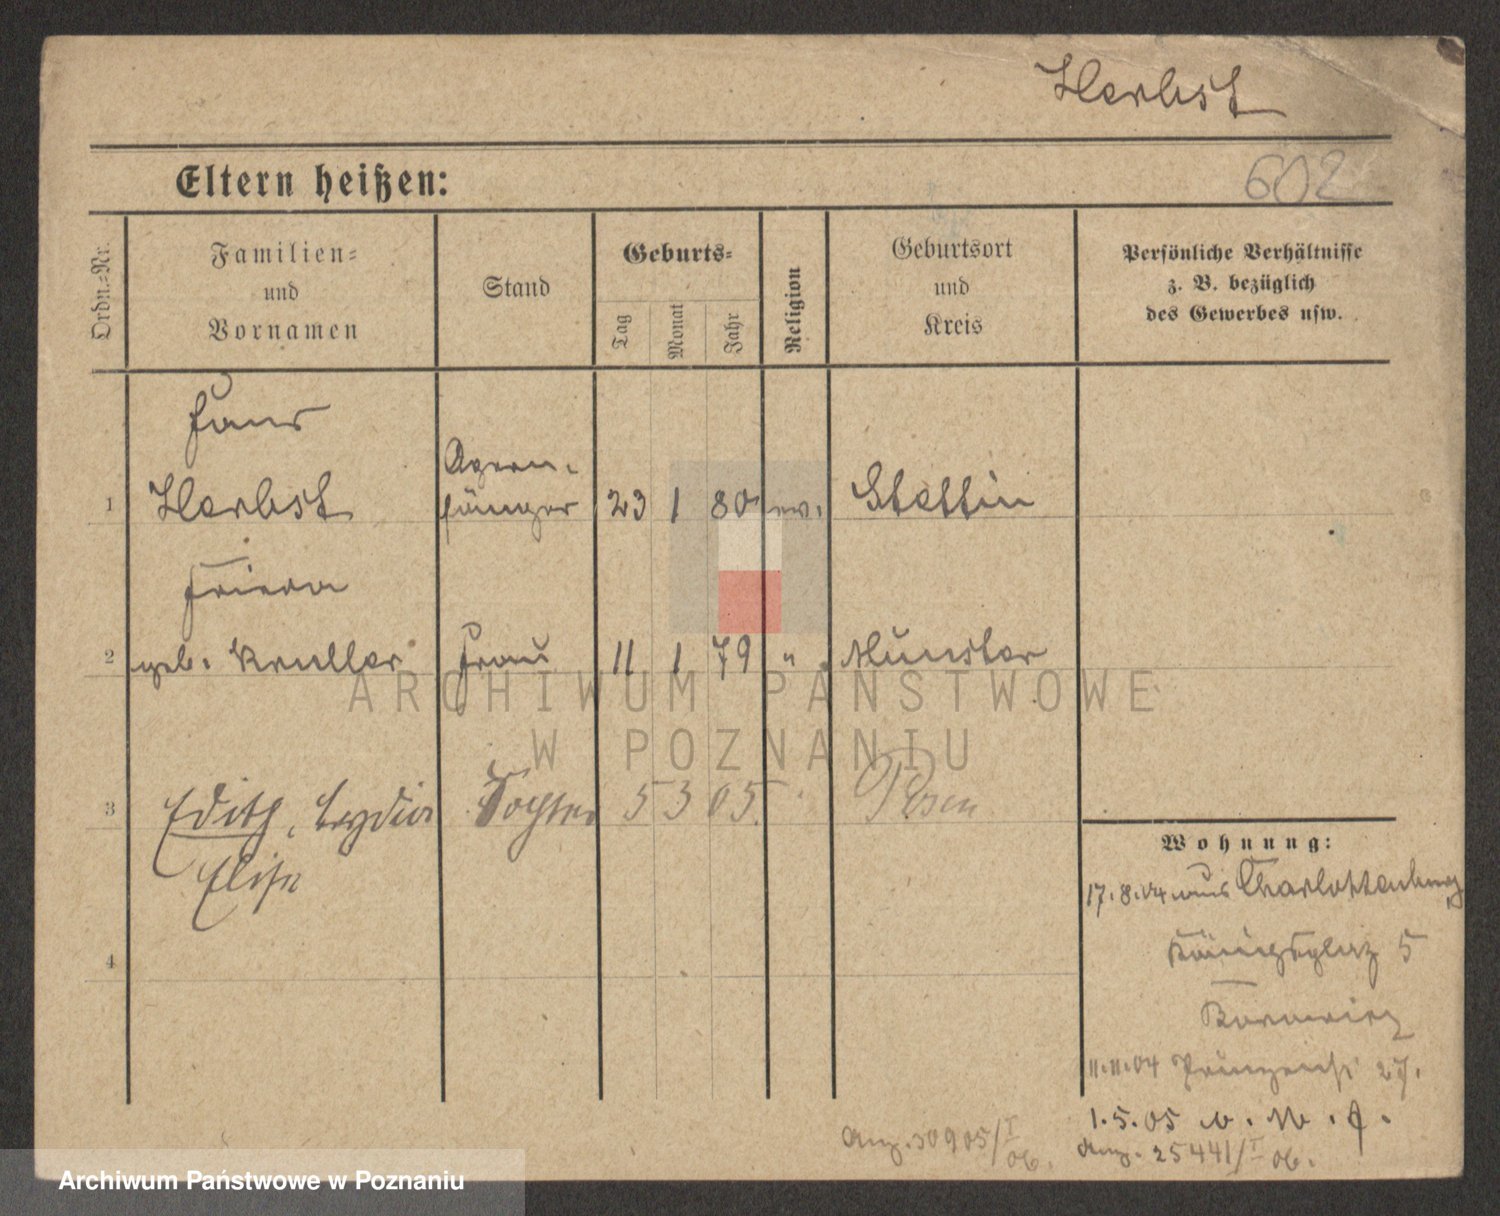 Herbst
Eltern heißen:
602
Ordn.-Nr.
Familien-
und
Vornamen
Stand
Geburts-
Tag
Monat
Jahr
Religion
Geburtsort
und
Kreis
Persönliche Verhältnisse
z. B. bezüglich
des Gewerbes usw.
Hans
1 Herbst
Opern-
sänger 23 1 80 ev. Stettin
2 geb. Kruller Frau 11 1 79 " Münster
ARCHIWUM PAŃSTWOWE
W POZNANIU
3 Edith, Lydia Tochter 5 3 05. Posen
Elise
4
Wohnung:
17.8.04 aus Charlottenburg
Königsplatz 5
11.11.04 Prinzenstr 27.
1.5.05
Anz. 30905/I 06.
Anz. 25441/I 06.
Archiwum Państwowe w Poznaniu